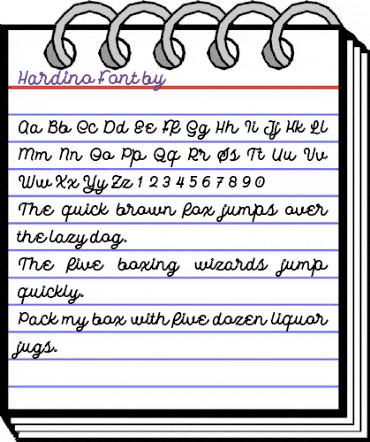 Hardino Font by
Aa Bb Cc Dd Ee Ff Gg Hh Ii Jj Kk Ll
Mm Nn Oo Pp Qq Rr Ss Tt Uu Vv
Ww Xx Yy Zz 1 2 3 4 5 6 7 8 9 0
The quick brown fox jumps over
the lazy dog.
The five boxing wizards jump
quickly.
Pack my box with five dozen liquor
jugs.